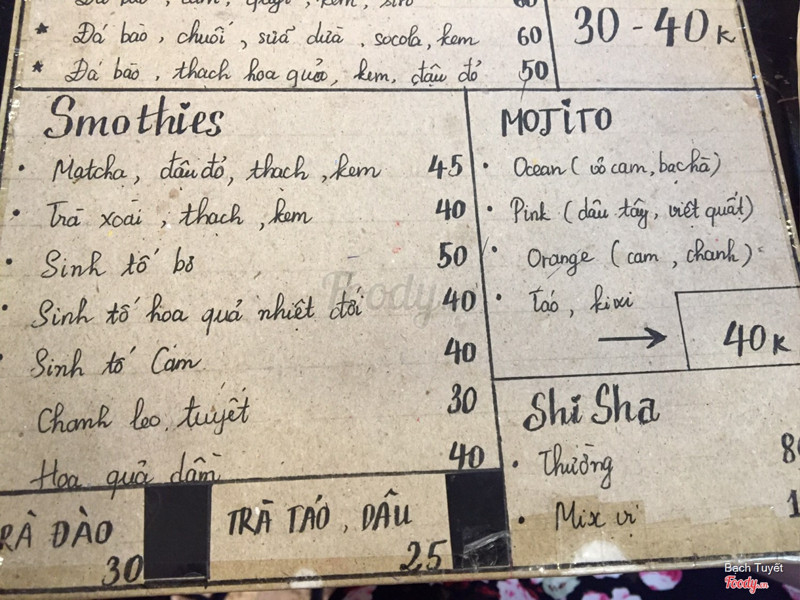 60
* Đá bào, chuối, sữa dừa, socola, kem 60
* Đá bào, thạch hoa quả, kem, đậu đỏ 50
30 - 40K
Smothies
• Matcha, đậu đỏ, thạch, kem 45
• Trà xoài, thạch, kem 40
• Sinh tố bơ 50
• Sinh tố hoa quả nhiệt đới 40
• Sinh tố Cam 40
Chanh leo tuyết 30
Hoa quả dầm 40
MOJITO
• Ocean (vỏ cam, bạc hà)
• Pink (dâu tây, việt quất)
• Orange (cam, chanh)
• Táo, kiwi
→ 40K
Shi Sha
• Thường
• Mix vị
RÀ ĐÀO
30
TRÀ TÁO, DÂU
25
Foody.vn
Bạch Tuyết
Foody.vn